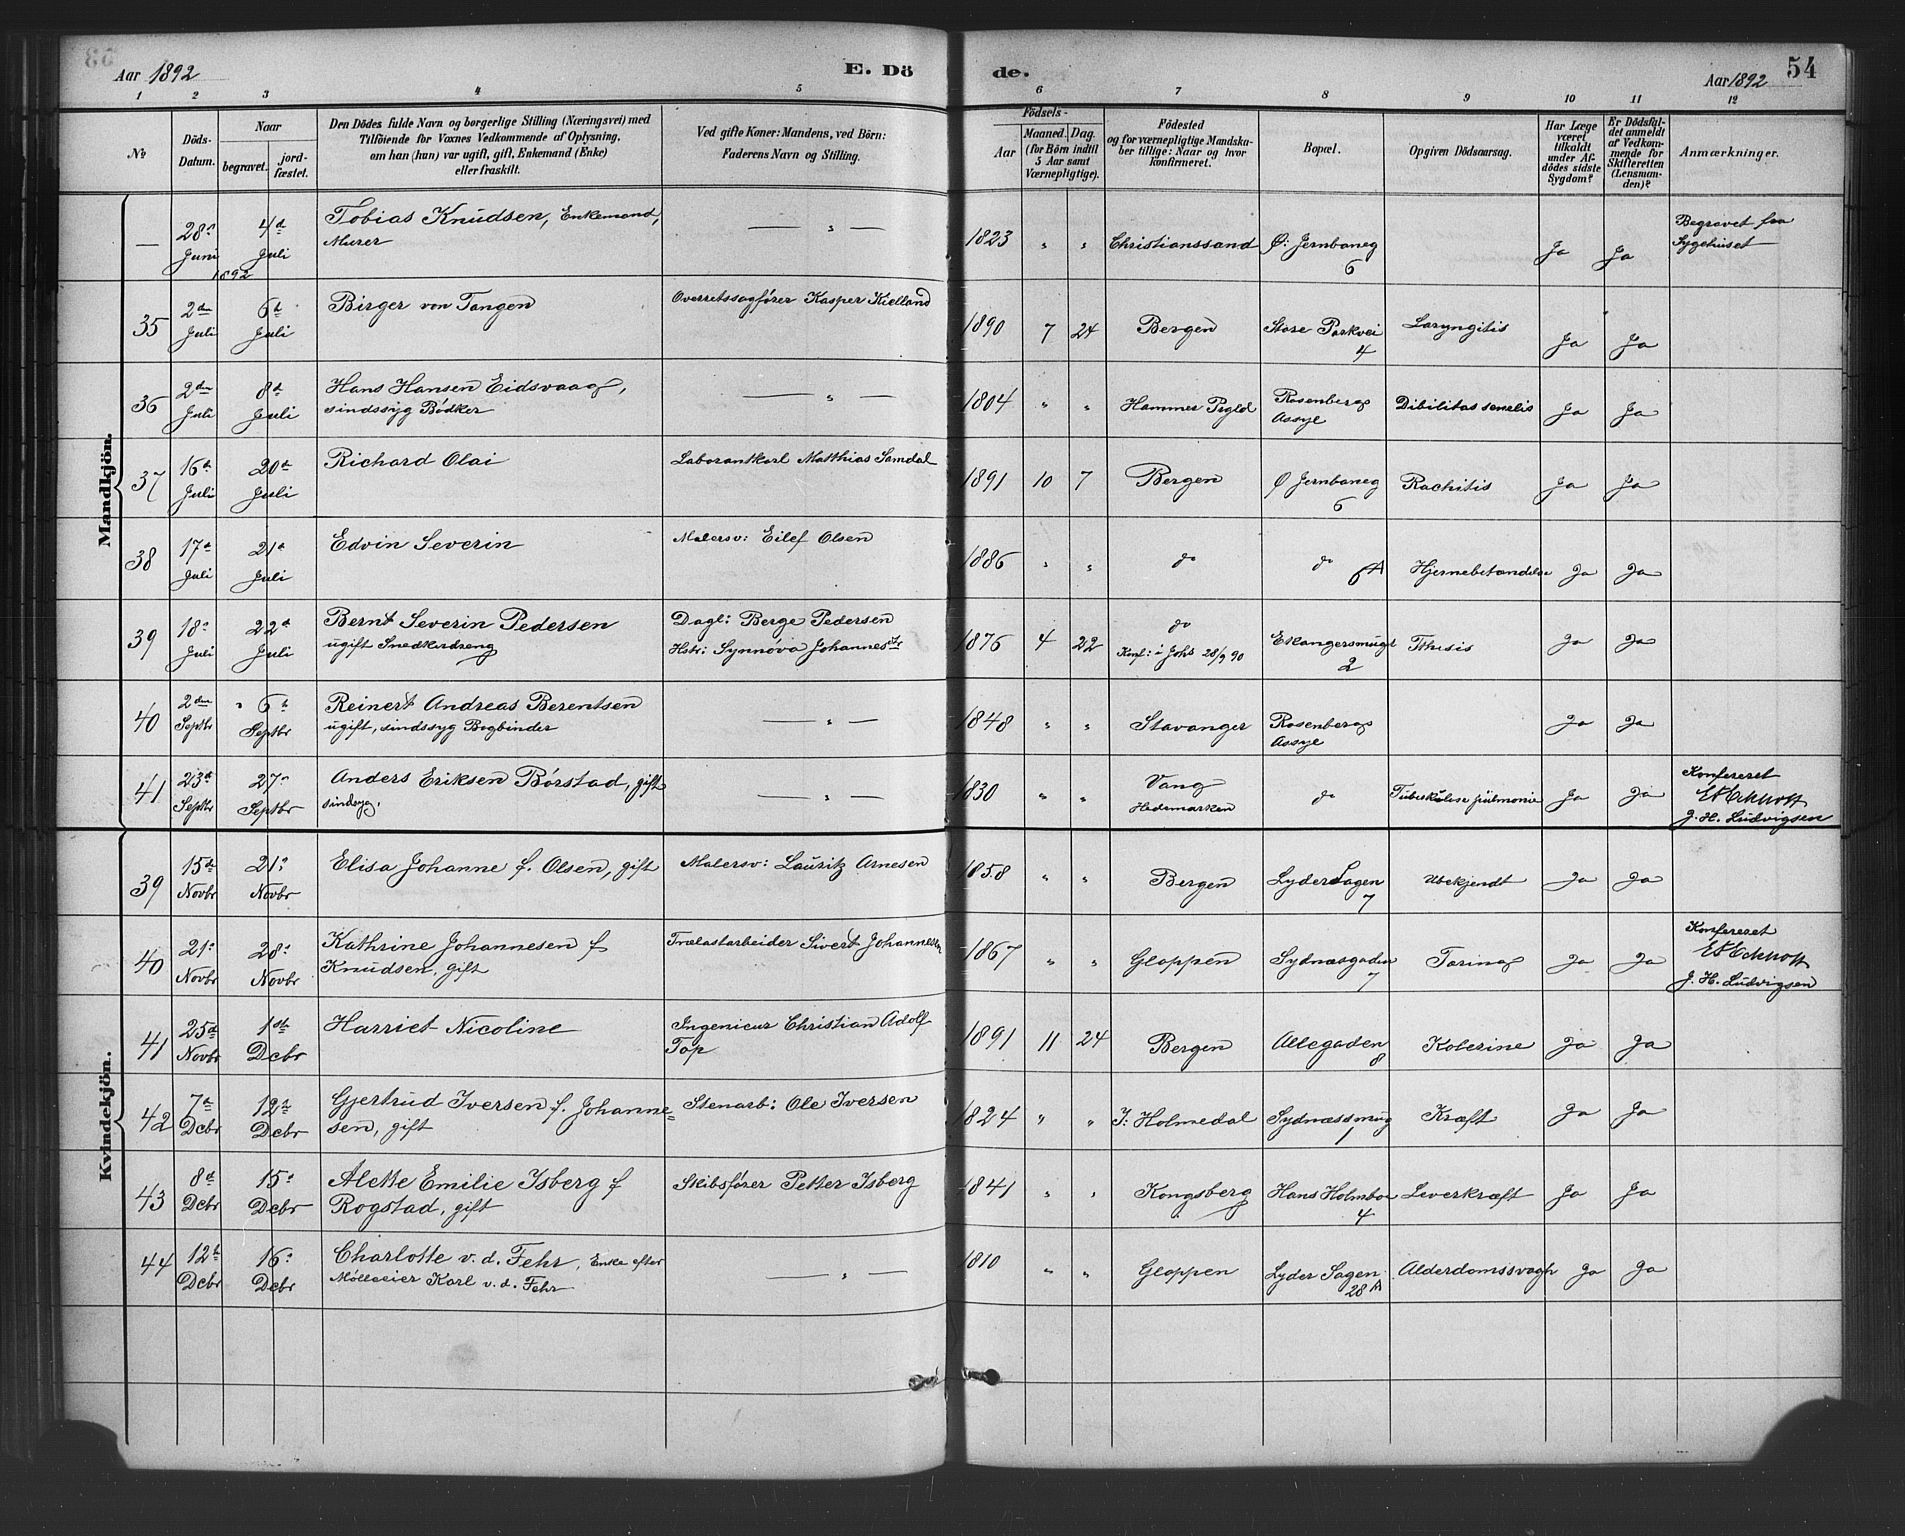 Aar 1892
E. Dö
de.
Aar 1892
54
1 2 3 4 5 6 7 8 9 10 11 12
No
Döds-Datum.
Naar
begravet.
jordfæstet.
Den Dödes fulde Navn og borgerlige Stilling (Næringsvei) med
Tilföiende for Voxnes Vedkommende af Oplysning,
om han (hun) var ugift, gift, Enkemand (Enke)
eller fraskilt.
Ved gifte Koner: Mandens, ved Börn:
Faderens Navn og Stilling.
Födsels-
Aar
Maaned. Dag.
(for Börn indtil
5 Aar samt
Værnepligtige).
Födested
og for værnepligtige Mandska-
ber tillige: Naar og hvor
konfirmeret.
Bopæl.
Opgiven Dödsaarsag.
Har Læge
været
tilkaldt
under Af-
dödes sidste
Sygdom?
Er Dödsfal-
det anmeldt
af Vedkom-
mende for
Skifteretten
(Lensman-
den)?
Anmærkninger.
Mandkjön.
— 28 Juni 4de Juli Tobias Knudsen, Enkemand, Murer — " — 1823 " " Christianssand Ø: Jernbaneg 6 Ja Ja Begravet fra Sygehuset
1892
35 2den Juli 6te Juli Birger von Tangen Overretssagfører Kasper Kielland 1890 7 24 Bergen Store Parkvei 4 Laryngitis Ja Ja
36 2den Juli 8de Juli Hans Hansen Eidsvaag, sindssyg Bødker — " — 1804 " " Hammer Prgld Rosenbergs Assye Dibilitas senelis Ja Ja
37 16de Juli 20de Juli Richard Olai Laborantkarl Matthias Samdal 1891 10 7 Bergen Ø Jernbaneg 6 Rachitis Ja Ja
38 17de Juli 21de Juli Edvin Severin Malersv: Eilef Olsen 1886 " " do do 6A Hjernebetændelse Ja Ja
39 18 Juli 22de Juli Bernt Severin Pedersen ugift Snedkerdreng Dagl: Berge Pedersen Hstr: Synnøva Johannesdtr 1876 4 22 do Konf: i Johs 28/9 90 Ekangersmuget 2 Tthisis Ja Ja
40 2den Septbr 6te Septbr Reinert Andreas Berentsen ugift, sindssyg Bogbinder — " — 1848 " " Stavanger Rosenbergs Assye Ja Ja
41 23de Septbr 27 Septbr Anders Eriksen Børstad, gift sindsyg. — " — 1830 " " Vang Hedemarken do Tuberkulose pulmonie Ja Ja Konfereret EKEckhoff J. H. Ludvigsen
Kvindekjön.
39 15de Novbr 21 Novbr Elisa Johanne f. Olsen, gift Malersv: Lauritz Arnesen 1858 " " Bergen Lyder Sagen 7 Ubekjendt Ja Ja
40 21 Novbr 28 Novbr Kathrine Johannesen f Knudsen, gift Trælastarbeider Sivert Johannesen 1867 " " Gloppen Sydnæsgaden 7 Tæring Ja Ja Konfereret EKEckhoff J. H. Ludvigsen
41 25de Novbr 1ste Dcbr Harriet Nicoline Ingenieur Christian Adolf Top 1891 11 24 Bergen Allegaden 8 Kolerine Ja Ja
42 7de Dcbr 12te Dcbr Gjertrud Iversen f. Johannesen, gift Stenarb: Ole Iversen 1824 " " I: Holmedal Sydnæssmug 1 Kræft Ja Ja
43 8de Dcbr 15 Dcbr Alette Emilie Isberg f Rogstad, gift Skibsfører Petter Isberg 1841 " " Kongsberg Hans Holmboe 4 Leverkræft Ja Ja
44 12te Dcbr 16 Dcbr Charlotte v. d. Fehr, Enke efter Mølleeier Karl v. d. Fehr — " — 1810 " " Gloppen Lyder Sagen 28A Alderdomssvagh Ja Ja